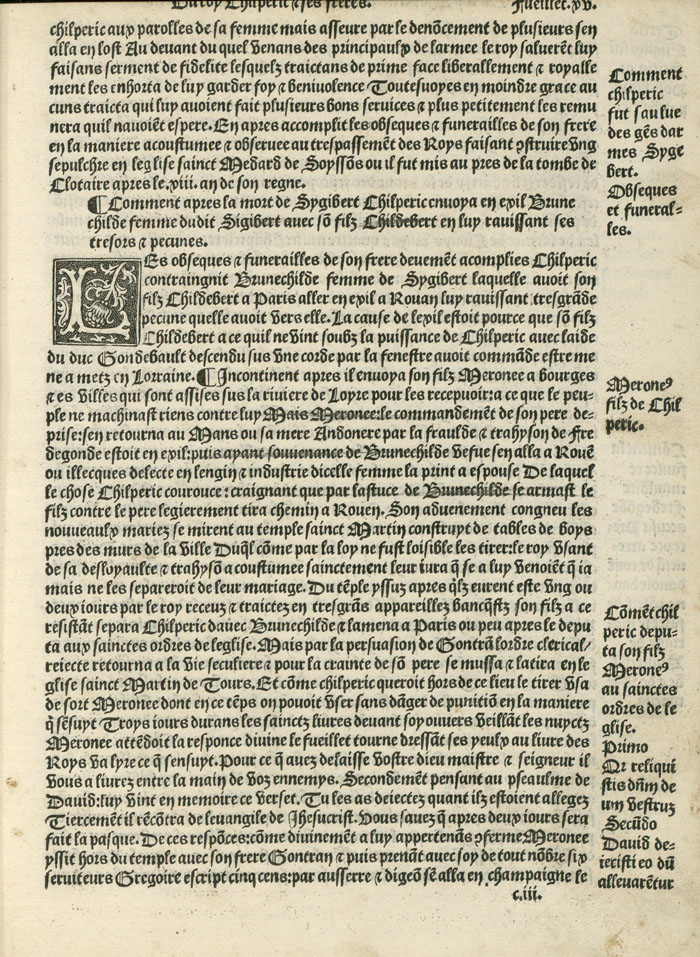 Du roy Chilperic ⁊ ses freres. Fueillet.xv.
chilperic aux parolles de sa femme mais asseure par le denõcement de plusieurs sen
alla en lost Au deuant du quel venans des principaulx de larmee le roy saluerẽt luy
faisans serment de fidelite lesquelz traictans de prime face liberallement ⁊ royalle
ment les enhorta de luy garder foy ⁊ beniuolence Toutesuoyes en moindre grace au
cuns traicta qui luy auoient fait plusieurs bons seruices ⁊ plus petitement les remu
nera quil nauoiẽt espere. En apres accomplit les obseques ⁊ funerailles de son frere
en la maniere acoustumee ⁊ obseruee au trespassemẽt des Roys faisant ꝯstruire vng
sepulchre en leglise sainct Medard de Soyssõs ou il fut mis au pres de la tombe de
Clotaire apres le.xiii. an de son regne.
¶ Comment apres la mort de Sygibert Chilperic enuoya en exil Brune
childe femme dudit Sigibert auec sõ filz Childebert en luy rauissant ses
tresors ⁊ pecunes.
LEs obseques ⁊ funerailles de son frere deuemẽt acomplies Chilperic
contraingnit Brunechilde femme de Sygibert laquelle auoit son
filz Childebert a Paris aller en exil a Rouan luy rauissant tresgrãde
pecune quelle auoit vers elle. La cause de lexil estoit pource que sõ filz
Childebert a ce quil ne vint soubz la puissance de Chilperic auec laide
du duc Gondebault descendu sus vne corde par la fenestre auoit commãde estre me
ne a metz en Lorraine. ¶ Incontinent apres il enuoya son filz Meronee a bourges
⁊ es villes qui sont assises sus la riuiere de Loyre pour les recepuoir: a ce que le peu-
ple ne machinast riens contre luy Mais Meronee: le commandemẽt de son pere de-
prise: sen retourna au Mans ou sa mere Andonere par la fraulde ⁊ trahyson de Fre
degonde estoit en exil: puis ayant souuenance de Brunechilde vefue sen alla a Rouẽ
ou illecques delecte en lengin ⁊ industrie dicelle femme la print a espouse De laquel
le chose Chilperic courouce: craignant que par lastuce de Brunechilde se armast le
filz contre le pere legierement tira chemin a Rouen. Son aduenement congneu les
nouueaulx mariez se mirent au temple sainct Martin construyt de tables de boys
pres des murs de la ville Duq̃l cõme par la loy ne fust loisible les tirer: le roy vsant
de sa desloyaulte ⁊ trahysõ a coustumee sainctement leur iura q̃ se a luy venoiẽt q̃ ia
mais ne les separeroit de leur mariage. Du tẽple yssuz apres q̃lz eurent este vng ou
deux iours par le roy receuz ⁊ traictez en tresgrãs appareilez bancq̃tz son filz a ce
resistãt separa Chilperic dauec Brunechilde ⁊ lamena a Paris ou peu apres le depu
ta aux sainctes ordres de leglise. Mais par la persuasion de Gontrã lordre clerical
reiecte retourna a la vie seculiere ⁊ pour la crainte de sõ pere se mussa ⁊ latira en le
glise sainct Martin de Tours. Et cõme chilperic queroit hors de ce lieu le tirer vsa
de sort Meronee dont en ce tẽps on pouoit vser sans dãger de punitiõ en la maniere
q̃ sẽsuyt Troys iours durans les sainctz liures deuant soy ouuers veillãt les nuyctz
Meronee attẽdoit la responce diuine le fueillet tourne dressãt ses yeulx au liure des
Roys va lyre ce q̃ sensuyt. Pour ce q̃ auez delaisse vostre dieu maistre ⁊ seigneur il
vous a liurez entre la main de voz ennemys. Secondemẽt pensant au pseaulme de
Dauid: luy vint en memoire ce verset. Tu les as deiectez quant ilz estoient allegez
Tiercemẽt il rẽcõtra de leuangile de Jhesucrist. Vous sauez q̃ apres deux iours sera
fait la pasque. De ces respõces: cõme diuinemẽt a luy appertenãs ꝯferme Meronee
yssit hors du temple auec son frere Gontran ⁊ puis prenãt auec soy de tout nõbre six
seruiteurs Gregoire escript cinq cens: par ausserre ⁊ digeõ sẽ alla en champaigne le
c.iii.
Comment
chilperic
fut saulue
des gẽs dar
mes Syge
bert.
Obseques
et funeral=
les.
Meroneꝰ
filz de Chil
peric.
Cõmẽt chil
peric depu-
ta son filz
Meroneꝰ
au sainctes
ordres de le
glise.
Primo
Qr reliqui
stis dñm de
um vestrũz
Secũdo
Dauid de=
iecisti eo dũ
alleuarẽtur